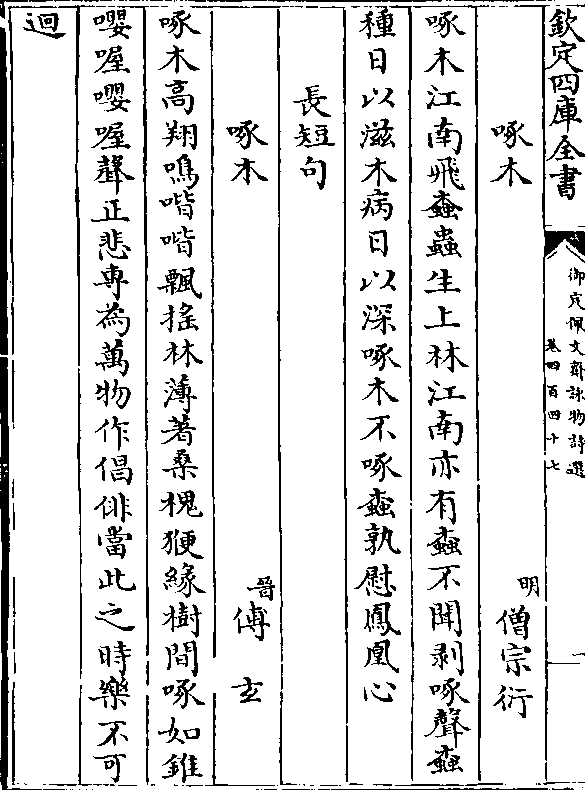 欽定四庫全書
御定佩文齋詠物詩選
卷四百四十七
一
啄木
明 僧宗衍
啄木江南飛蠹蟲生上林江南亦有蠹不聞剥啄聲蠹
種日以滋木病日以深啄木不啄蠹孰慰鳳凰心
長短句
啄木
晉 傅玄
啄木高翔鳴喈喈飄搖林薄著桑槐㹴緣樹間啄如錐
嚶喔嚶喔聲正悲專為萬物作倡俳當此之時樂不可
迴